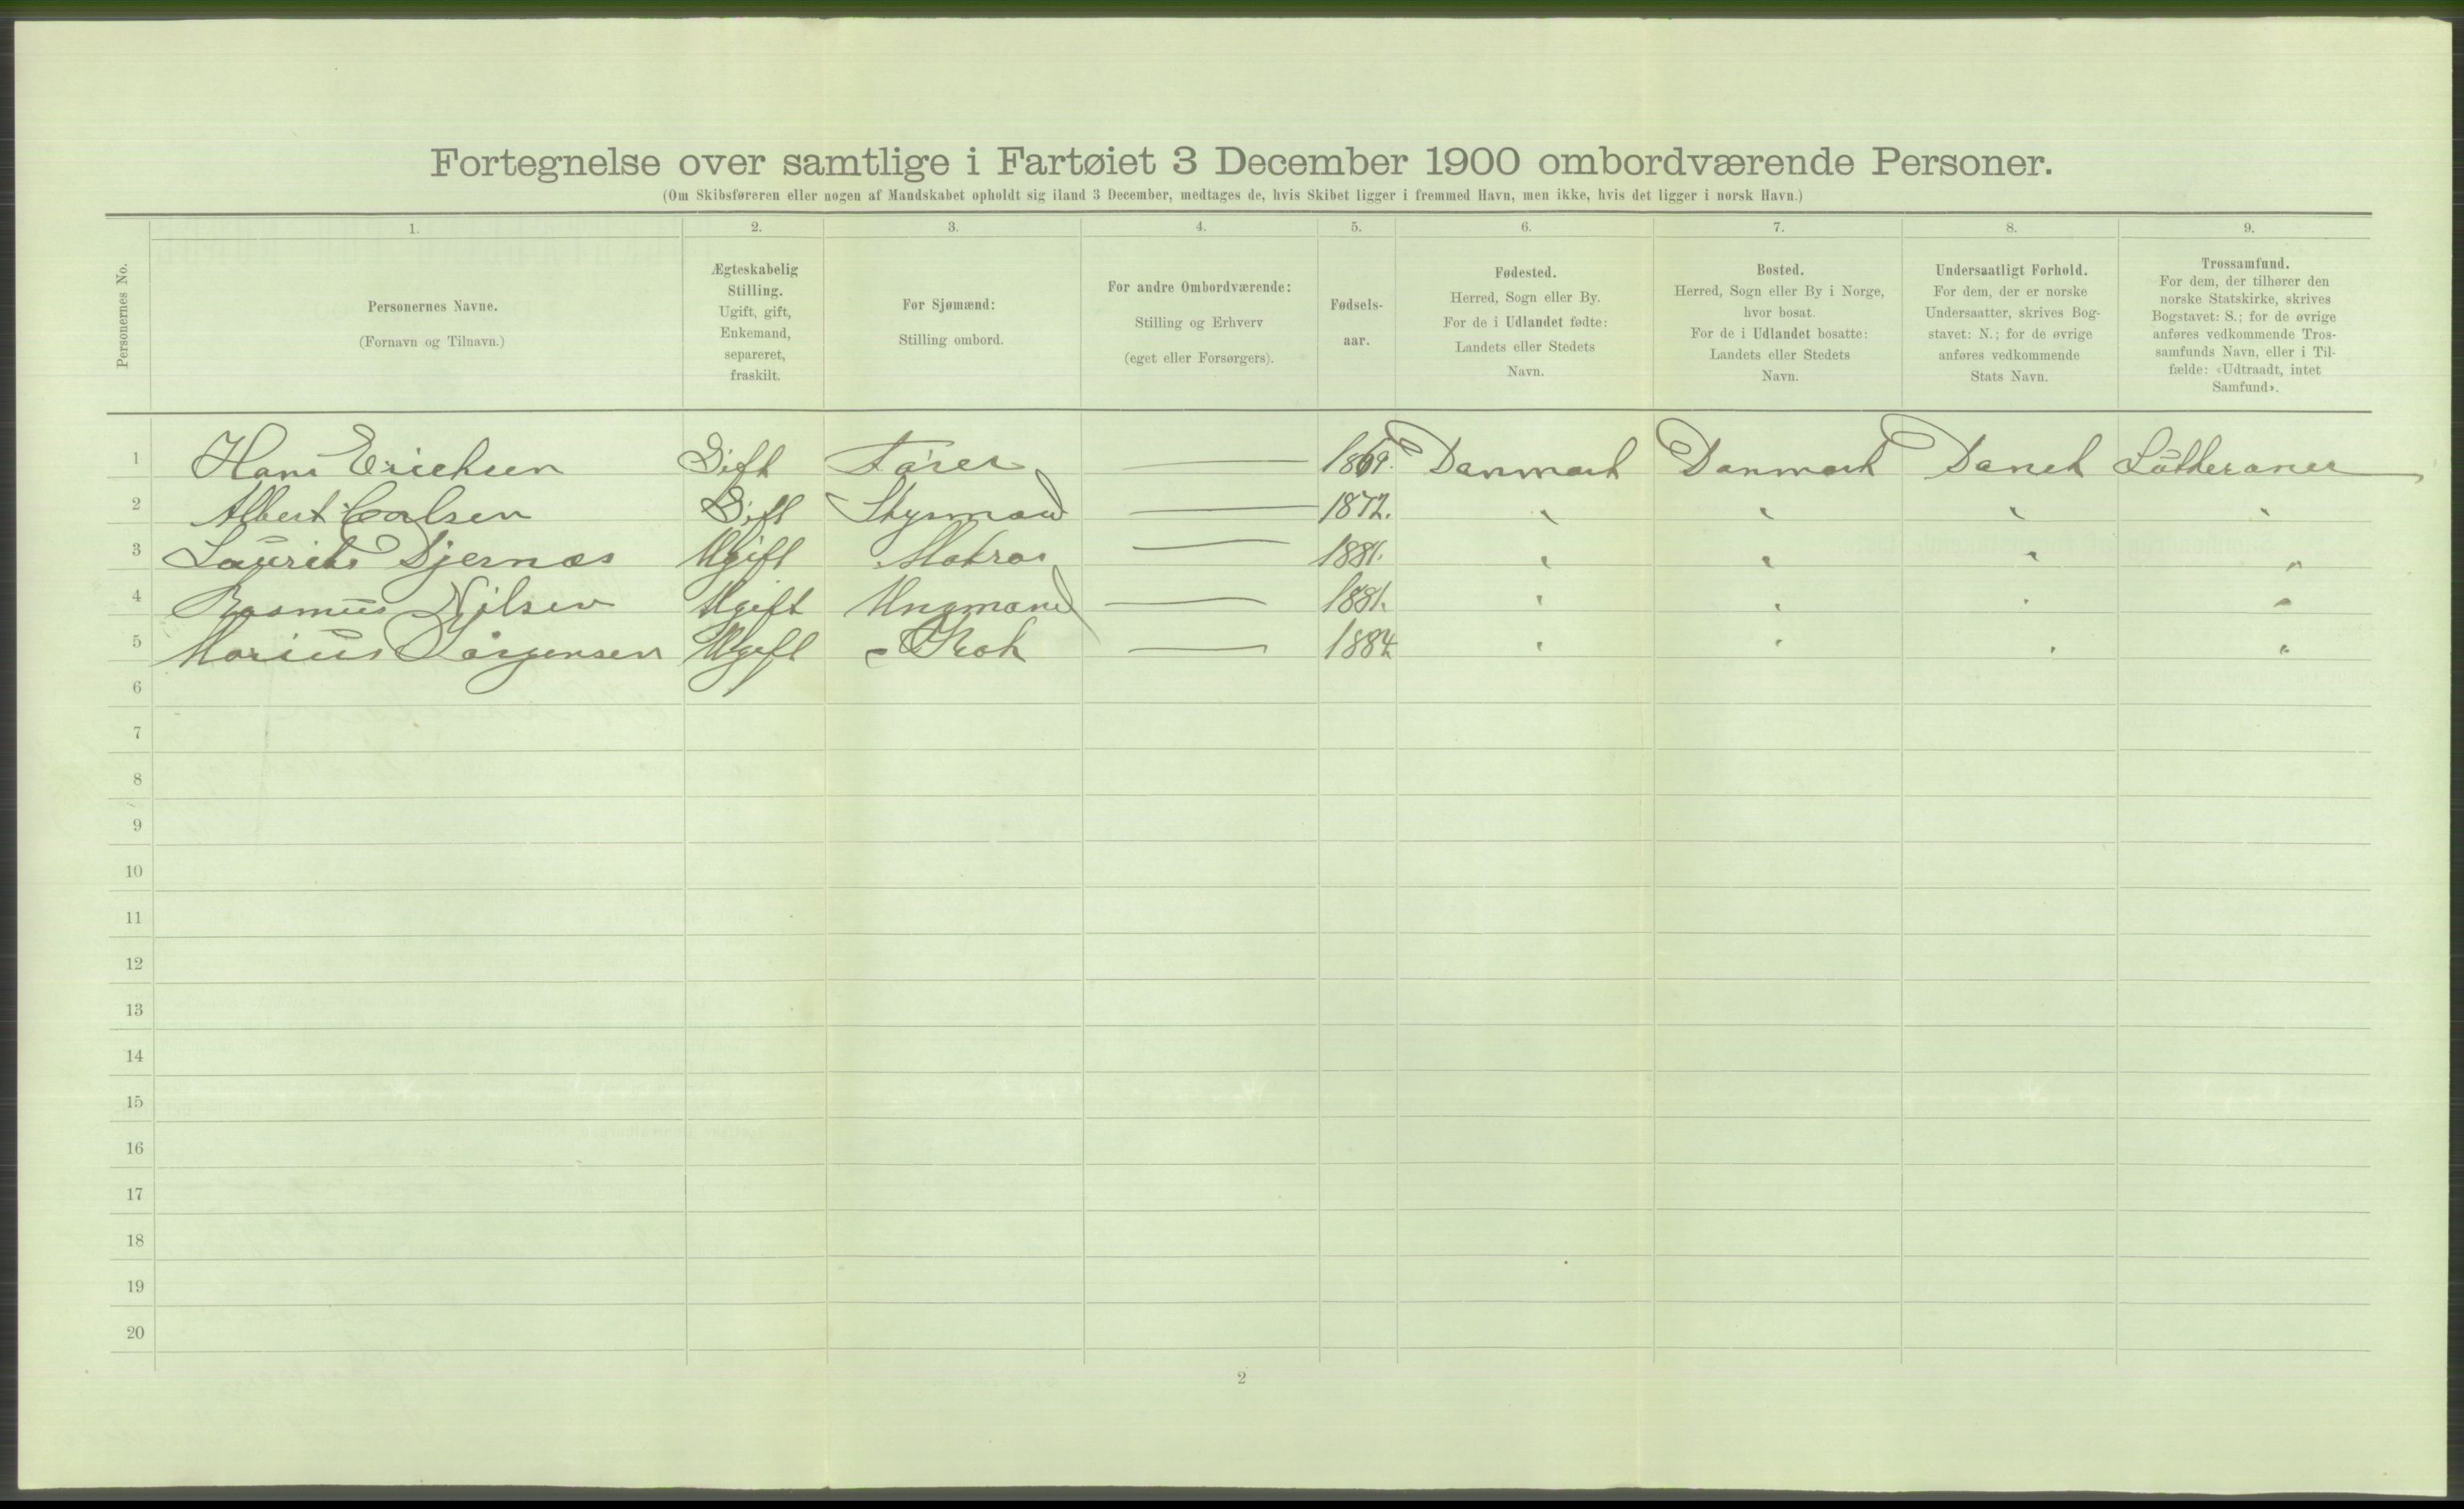 Fortegnelse over samtlige i Fartøiet 3 December 1900 ombordværende Personer.
(Om Skibsføreren eller nogen af Mandskabet opholdt sig iland 3 December, medtages de, hvis Skibet ligger i fremmed Havn, men ikke, hvis det ligger i norsk Havn.)
1. 2. 3. 4. 5. 6. 7. 8. 9.
Personernes No.
Personernes Navne.
(Fornavn og Tilnavn.)
Ægteskabelig
Stilling.
Ugift, gift,
Enkemand,
separeret,
fraskilt.
For Sjømænd:
Stilling ombord.
For andre Ombordværende:
Stilling og Erhverv
(eget eller Forsørgers).
Fødsels-
aar.
Fødested.
Herred, Sogn eller By.
For de i Udlandet fødte:
Landets eller Stedets
Navn.
Bosted.
Herred, Sogn eller By i Norge,
hvor bosat.
For de i Udlandet bosatte:
Landets eller Stedets
Navn.
Undersaatligt Forhold.
For dem, der er norske
Undersaatter, skrives Bog-
stavet: N.; for de øvrige
anføres vedkommende
Stats Navn.
Trossamfund.
For dem, der tilhører den
norske Statskirke, skrives
Bogstavet: S.; for de øvrige
anføres vedkommende Tros-
samfunds Navn, eller i Til-
fælde: «Udtraadt, intet
Samfund».
1 Hans Erichsen Gift Fører — 1869. Danmark Danmark Dansk Lutheraner
2 Albert Carlsen Gift Stysmand — 1872. " " " "
3 Laurits Djernæs Ugift Matros — 1881. " " " "
4 Rasmus Nilsen Ugift Ungmand — 1881. " " " "
5 Marius Jørgensen Ugift Kok — 1884 " " " "
6
7
8
9
10
11
12
13
14
15
16
17
18
19
20
2